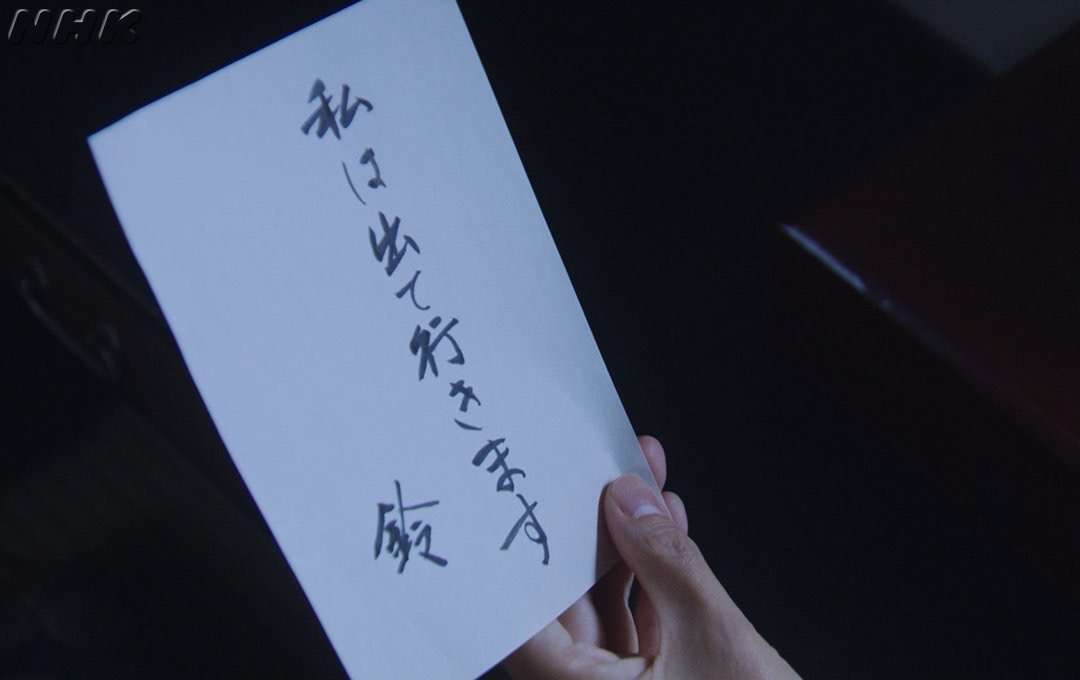 NHK
私は出て行きます
鈴